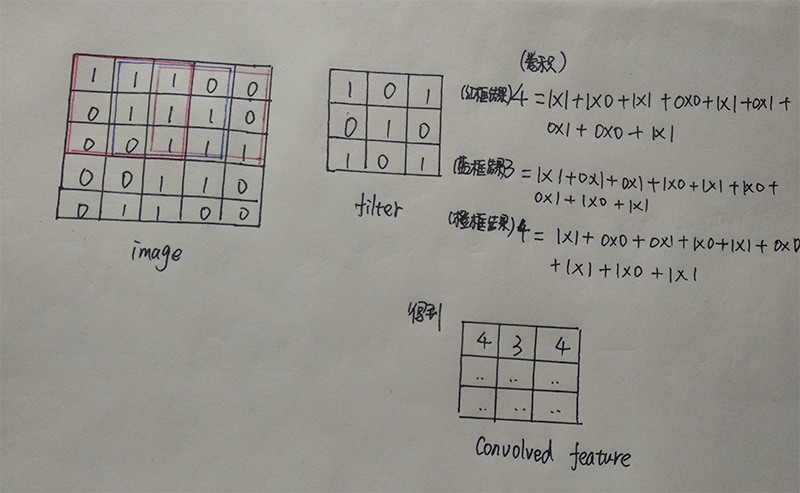 (卷积)
1 1 1 0 0
0 1 1 1 0
0 0 1 1 1
0 0 1 1 0
0 1 1 0 0
image
1 0 1
0 1 0
1 0 1
filter
(红框结果)4 =1X1+1X0+1X1+0X0+1X1+0X1+
0X1+0X0+1X1
(蓝框结果)3 =1X1+0X1+0X1+1X0+1X1+1X0+
0X1+1X0+1X1
(橙框结果)4= 1X1+0X0+0X1+1X0+1X1+0X0
+1X1+1X0+1X1
得到
4 3 4
.. .. ..
.. .. ..
Convolved feature